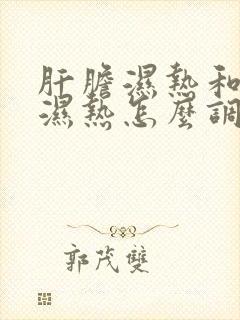 肝膽濕熱和
濕熱怎麼調
郭茂雙